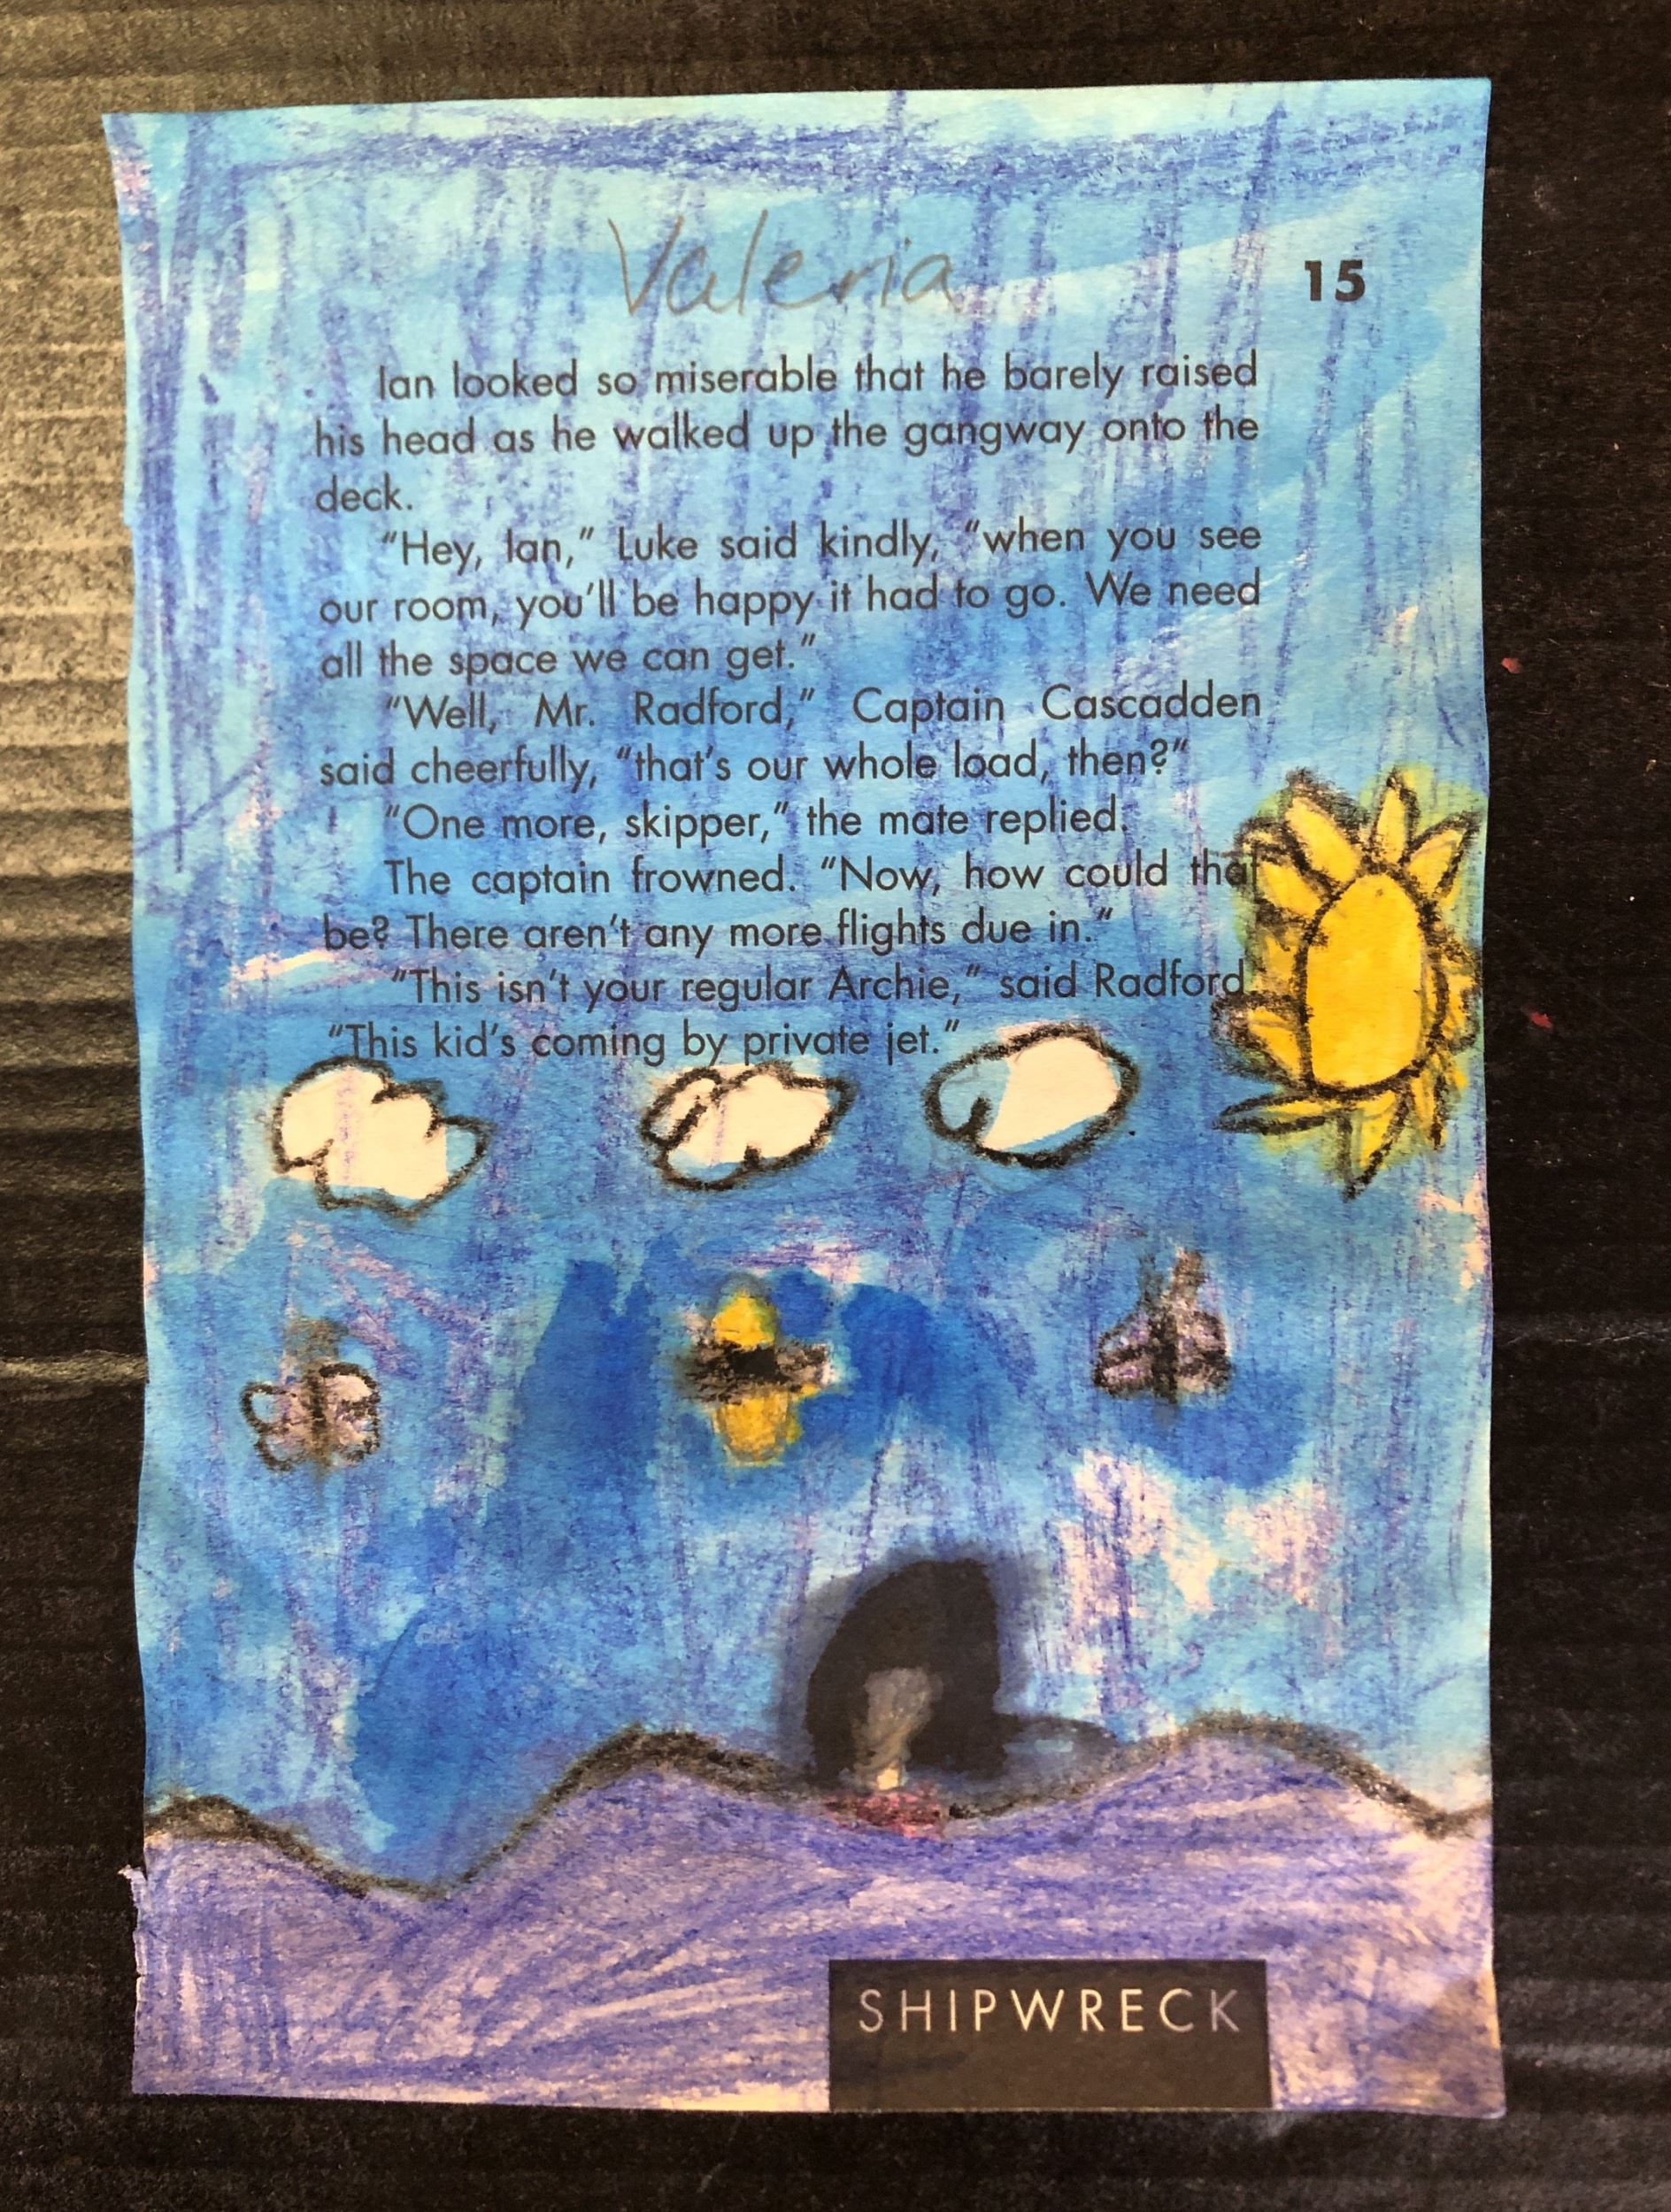 Valeria
15
Ian looked so miserable that he barely raised
his head as he walked up the gangway onto the
deck.
“Hey, Ian,” Luke said kindly, “when you see
our room, you’ll be happy it had to go. We need
all the space we can get.”
“Well, Mr. Radford,” Captain Cascadden
said cheerfully, “that’s our whole load, then?”
“One more, skipper,” the mate replied.
The captain frowned. “Now, how could that
be? There aren’t any more flights due in.”
“This isn’t your regular Archie,” said Radford.
“This kid’s coming by private jet.”
SHIPWRECK